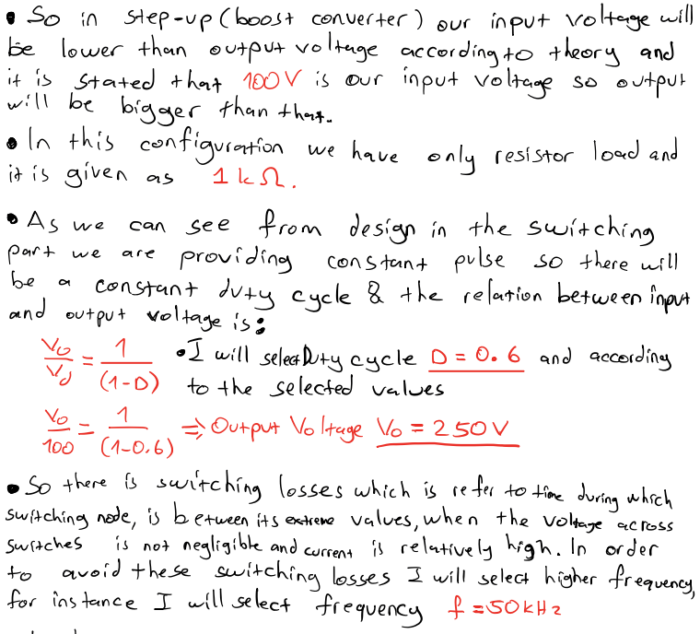 • So in step-up (boost converter) our input voltage will
be lower than output voltage according to theory and
it is stated that 100V is our input voltage so output
will be bigger than that.
• In this configuration we have only resistor load and
it is given as 1kΩ.
• As we can see from design in the switching
part we are providing constant pulse so there will
be a constant duty cycle & the relation between input
and output voltage is:
Vo/Vd = 1/(1-D) • I will select Duty cycle D = 0.6 and according
to the selected values
Vo/100 = 1/(1-0.6) ⇒ Output Voltage Vo = 250V
• So there is switching losses which is refer to time during which
switching node, is between its extreme values, when the voltage across
switches is not negligible and current is relatively high. In order
to avoid these switching losses I will select higher frequency,
for instance I will select frequency f = 50kHz